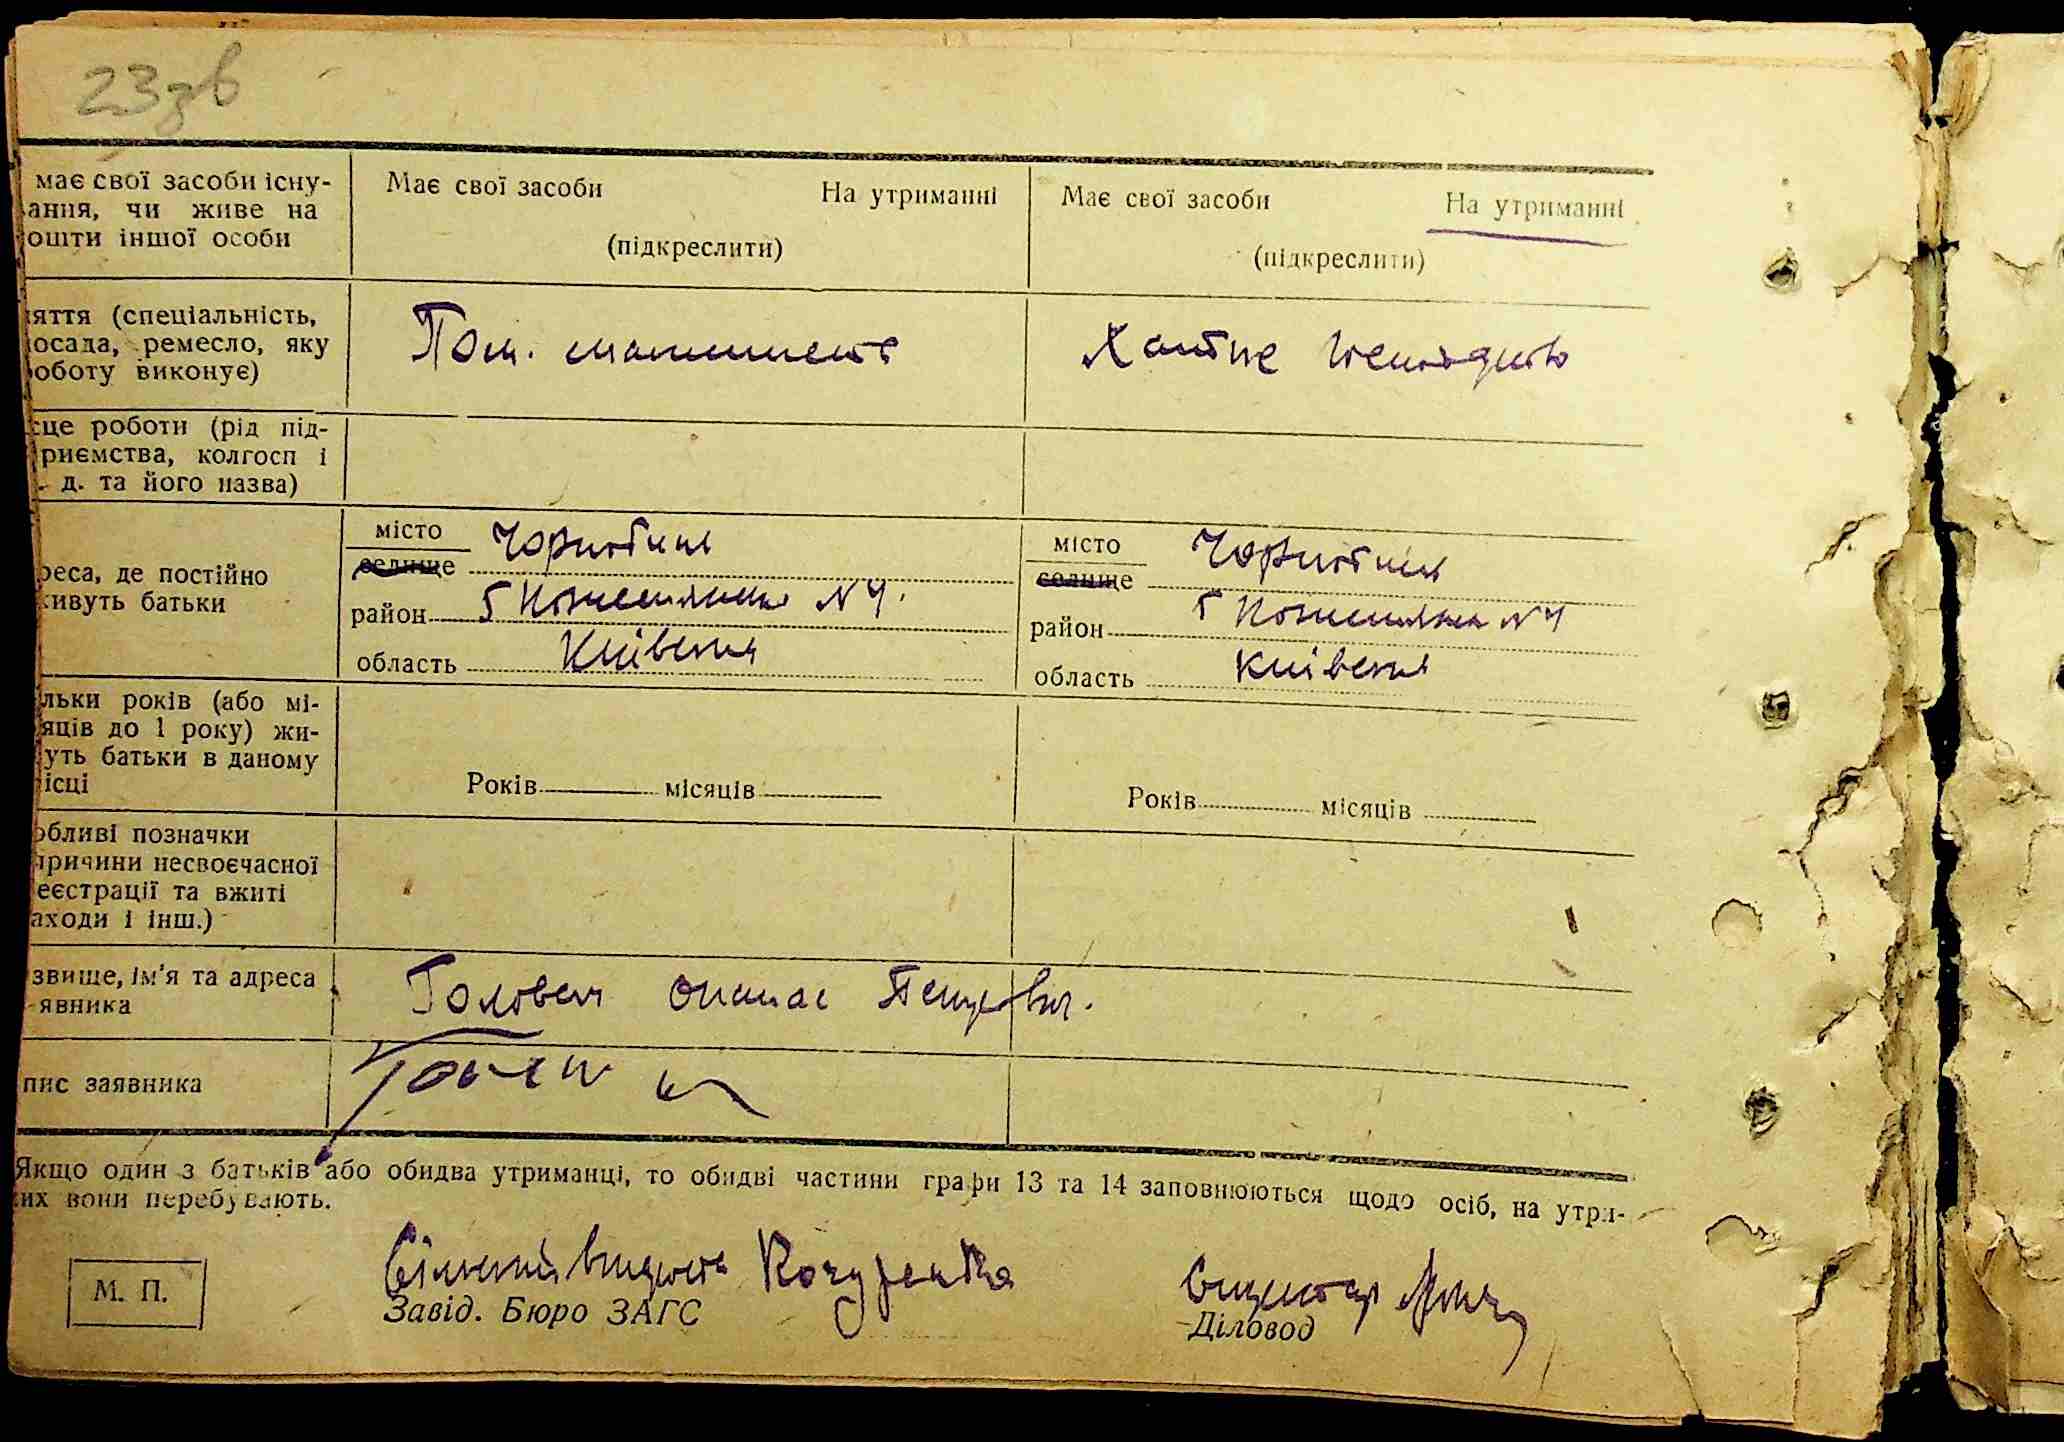 23зв
має свої засоби існу-
ання, чи живе на
ошти іншої особи
Має свої засоби На утриманні
(підкреслити)
Має свої засоби На утриманні
(підкреслити)
яття (спеціальність,
осада, ремесло, яку
оботу виконує)
Пом. машиніста
Хатнє
сце роботи (рід під-
приємства, колгосп і
. д. та його назва)
реса, де постійно
живуть батьки
місто
селище
район
область Київська
N 4.
місто
селище
район
область Київська
N 4
льки років (або мі-
яців до 1 року) жи-
уть батьки в даному
ісці
Років місяців
Років місяців
обливі позначки
причини несвоєчасної
еєстрації та вжиті
аходи і інш.)
звище, ім'я та адреса
явника
Головач Опанас
пис заявника
Якщо один з батьків або обидва утриманці, то обидві частини графи 13 та 14 заповнюються щодо осіб, на утри-
их вони перебувають.
М. П.
Завід. Бюро ЗАГС
Секретар
Діловод